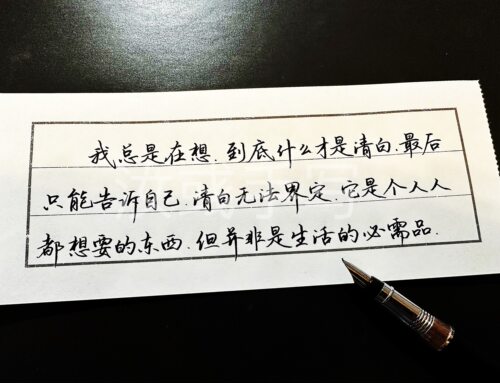 我总是在想.到底什么才是清白.最后
只能告诉自己.清白无法界定.它是个人人
都想要的东西.但并非是生活的必需品.